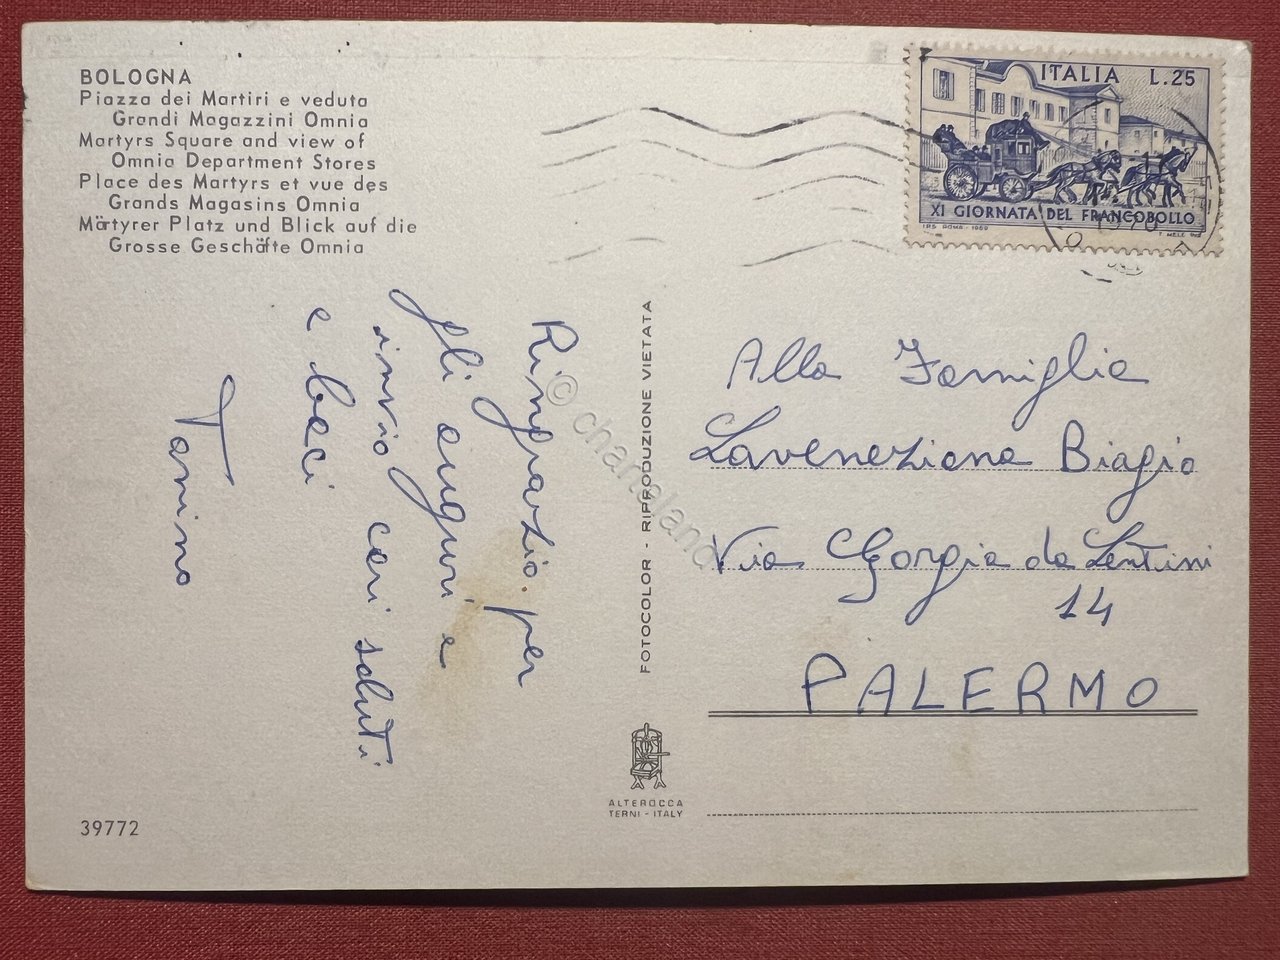 BOLOGNA
Piazza dei Martiri e veduta
Grandi Magazzini Omnia
Martyrs Square and view of
Omnia Department Stores
Place des Martyrs et vue des
Grands Magasins Omnia
Märtyrer Platz und Blick auf die
Grosse Geschäfte Omnia
ITALIA L.25
XI GIORNATA DEL FRANCOBOLLO
I.P.S. ROMA - 1969 T. MELE
1970
Ringrazio per
gli auguri e
invio cari saluti
e baci
Tanino
FOTOCOLOR - RIPRODUZIONE VIETATA
© chartaland
Alla Famiglia
Laveneziana Biagio
Via Gorgia da Lentini
14
PALERMO
ALTEROCCA
TERNI - ITALY
39772